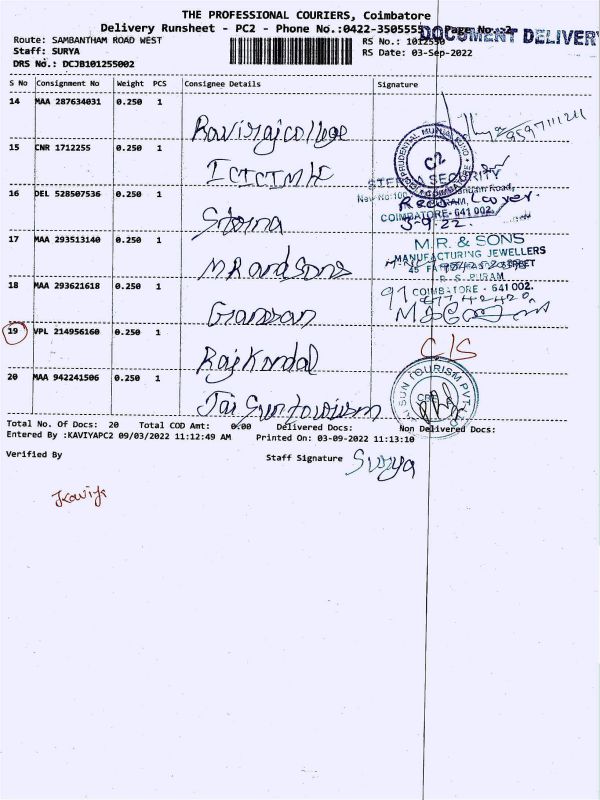 THE PROFESSIONAL COURIERS, Coimbatore
Delivery Runsheet - PC2 - Phone No.:0422-3505555 Page No.:2
DOCUMENT DELIVERY
Route: SAMBANTHAM ROAD WEST
RS No.: 1012550
Staff: SURYA
RS Date: 03-Sep-2022
DRS No.: DCJB101255002
S No Consignment No Weight PCS Consignee Details Signature
14 MAA 287634031 0.250 1
Ravirajcollege
9597111211
15 CNR 1712255 0.250 1
ICICIMF
ICICI PRUDENTIAL MUTUAL FUND
C2
COIMBATORE
16 DEL 528507536 0.250 1
SECURITY
COIMBATORE-641 002
3-9-22.
17 MAA 293513140 0.250 1
M R and Sons
M.R. & SONS
MANUFACTURING JEWELLERS
R. S. PURAM
COIMBATORE - 641 002.
18 MAA 293621618 0.250 1
19 VPL 214956160 0.250 1
C/S
20 MAA 942241506 0.250 1
Jai Suntourism
JAI SUN TOURISM PVT. LTD
CBE
Total No. Of Docs: 20 Total COD Amt: 0.00 Delivered Docs: Non Delivered Docs:
Entered By :KAVIYAPC2 09/03/2022 11:12:49 AM Printed On: 03-09-2022 11:13:10
Verified By
Staff Signature Surya
Kaviya